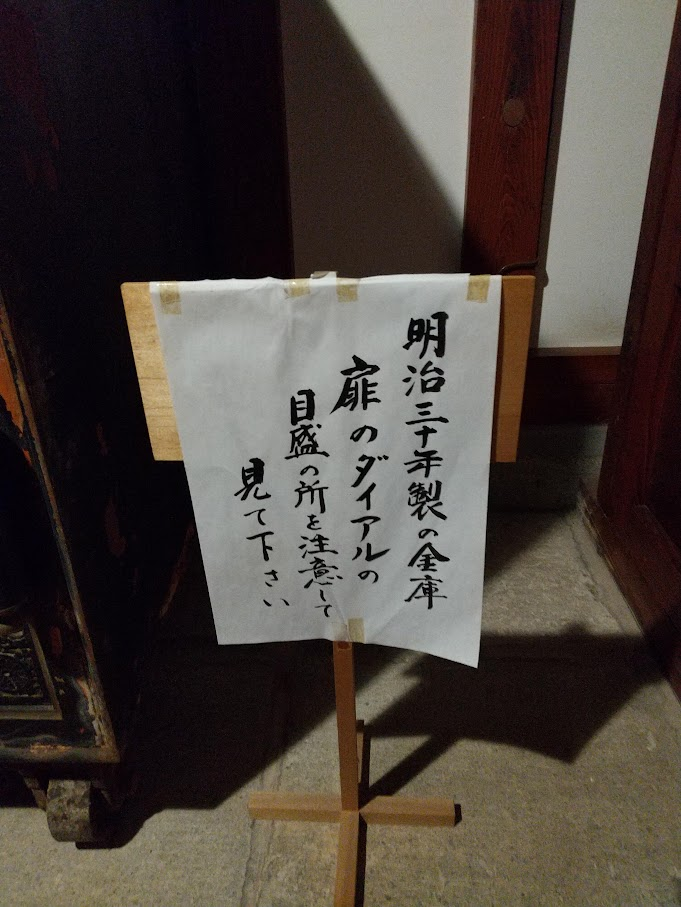 明治三十年製の金庫
扉のダイアルの
目盛の所を注意して
見て下さい